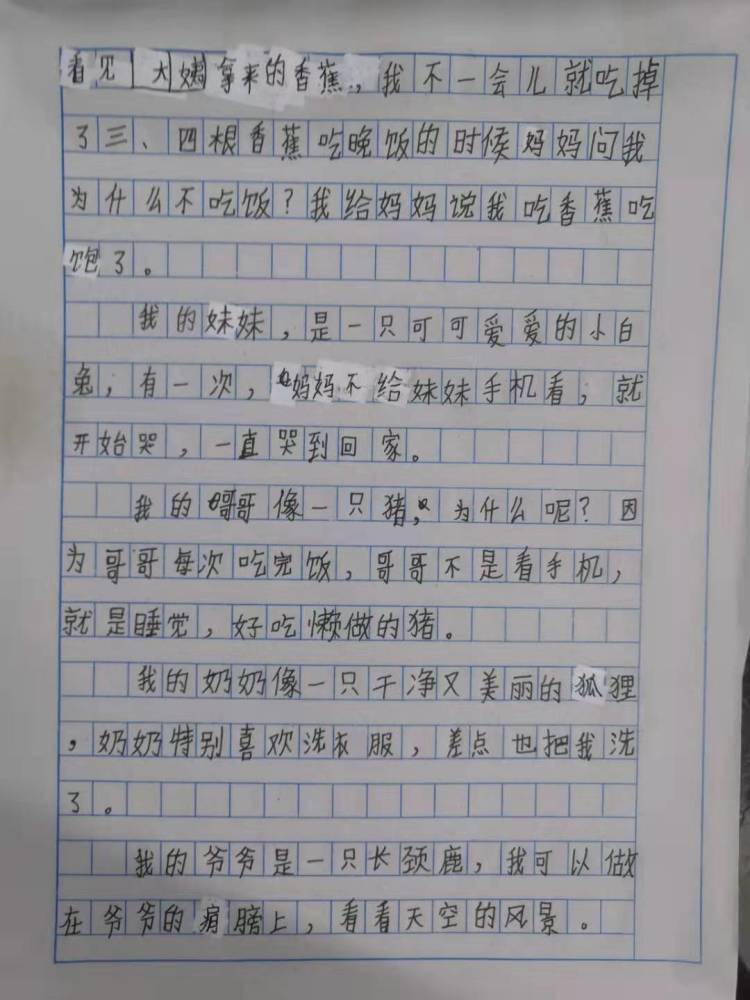 看见大姨拿来的香蕉，我不一会儿就吃掉
了三、四根香蕉吃晚饭的时候妈妈问我
为什么不吃饭？我给妈妈说我吃香蕉吃
饱了。
我的妹妹，是一只可可爱爱的小白
兔，有一次，妈妈不给妹妹手机看，就
开始哭，一直哭到回家。
我的哥哥像一只猪，为什么呢？因
为哥哥每次吃完饭，哥哥不是看手机，
就是睡觉，好吃懒做的猪。
我的奶奶像一只干净又美丽的狐狸
，奶奶特别喜欢洗衣服，差点也把我洗
了。
我的爷爷是一只长颈鹿，我可以做
在爷爷的肩膀上，看看天空的风景。